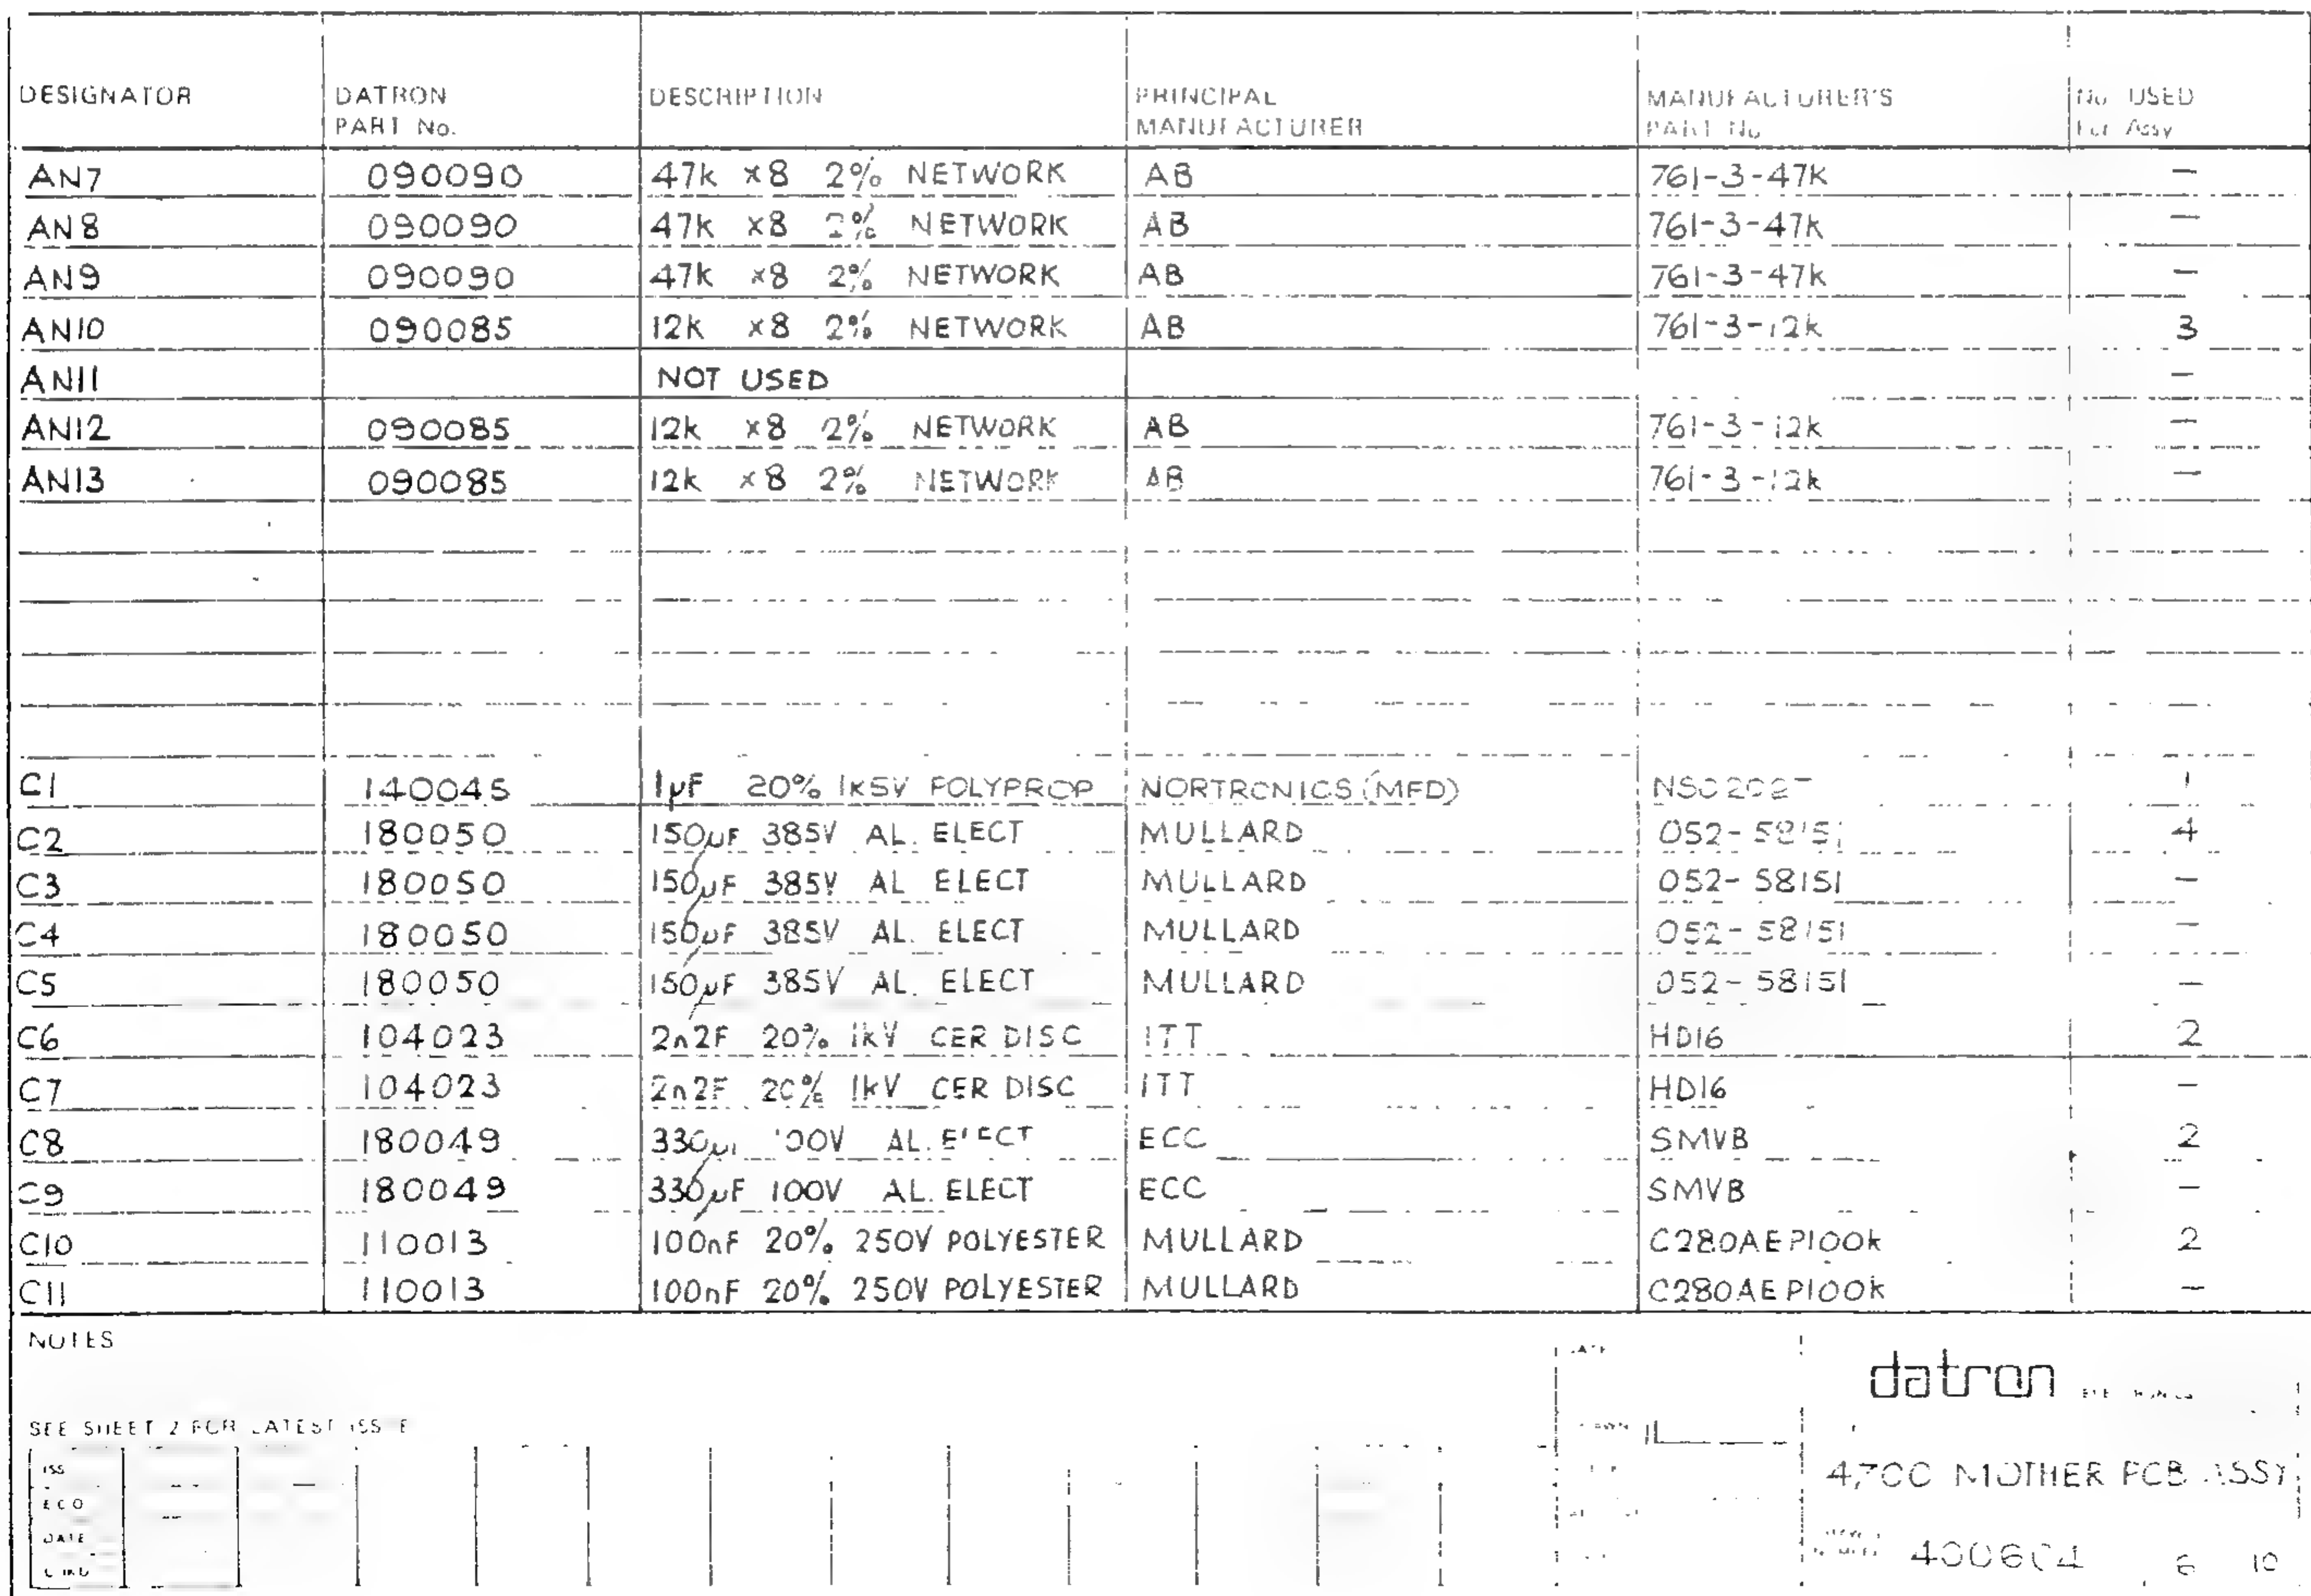 DESIGNATOR DATRON PART No. DESCRIPTION PRINCIPAL MANUFACTURER MANUFACTURER'S PART No No USED Per Assy
AN7 090090 47k ×8 2% NETWORK AB 761-3-47k —
AN8 090090 47k ×8 2% NETWORK AB 761-3-47k —
AN9 090090 47k ×8 2% NETWORK AB 761-3-47k —
AN10 090085 12k ×8 2% NETWORK AB 761-3-12k 3
AN11 NOT USED —
AN12 090085 12k ×8 2% NETWORK AB 761-3-12k —
AN13 090085 12k ×8 2% NETWORK AB 761-3-12k —
C1 140045 1µF 20% 1k5V POLYPROP NORTRONICS (MFD) 1
C2 180050 150µF 385V AL. ELECT MULLARD 052-58151 4
C3 180050 150µF 385V AL ELECT MULLARD 052-58151 —
C4 180050 150µF 385V AL. ELECT MULLARD 052-58151 —
C5 180050 150µF 385V AL. ELECT MULLARD 052-58151 —
C6 104023 2n2F 20% 1kV CER DISC ITT HD16 2
C7 104023 2n2F 20% 1kV CER DISC ITT HD16 —
C8 180049 330µF 100V AL. ELECT ECC SMVB 2
C9 180049 330µF 100V AL. ELECT ECC SMVB —
C10 110013 100nF 20% 250V POLYESTER MULLARD C280AEP100k 2
C11 110013 100nF 20% 250V POLYESTER MULLARD C280AEP100k —
NOTES
DATE
datron
SEE SHEET 2 FOR LATEST ISSUE
DRAWN
ISS
4700 MOTHER PCB ASSY
ECO
DATE
400604 6 10
CHKD